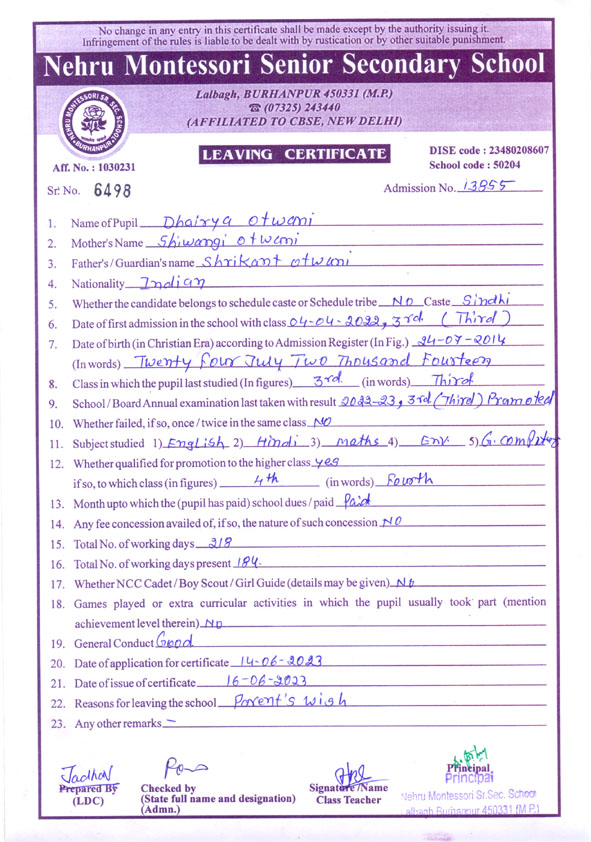 No change in any entry in this certificate shall be made except by the authority issuing it.
Infringement of the rules is liable to be dealt with by rustication or by other suitable punishment.
Nehru Montessori Senior Secondary School
Lalbagh, BURHANPUR 450331 (M.P.)
☎ (07325) 243440
(AFFILIATED TO CBSE, NEW DELHI)
NEHRU MONTESSORI SR. SEC. SCHOOL
BURHANPUR
LEAVING CERTIFICATE
DISE code : 23480208607
School code : 50204
Aff. No. : 1030231
Sr. No. 6498
Admission No. 13855
1. Name of Pupil Dhairya Otwani
2. Mother's Name Shiwangi Otwani
3. Father's / Guardian's name Shrikant Otwani
4. Nationality Indian
5. Whether the candidate belongs to schedule caste or Schedule tribe No Caste Sindhi
6. Date of first admission in the school with class 04-04-2022, 3rd (Third)
7. Date of birth (in Christian Era) according to Admission Register (In Fig.) 24-07-2014
(In words) Twenty Four July Two Thousand Fourteen
8. Class in which the pupil last studied (In figures) 3rd (in words) Third
9. School / Board Annual examination last taken with result 2022-23, 3rd (Third) Pramoted
10. Whether failed, if so, once / twice in the same class NO
11. Subject studied 1) English 2) Hindi 3) maths 4) Env. 5) G. computer
12. Whether qualified for promotion to the higher class yes
if so, to which class (in figures) 4th (in words) Fourth
13. Month upto which the (pupil has paid) school dues / paid Paid
14. Any fee concession availed of, if so, the nature of such concession NO
15. Total No. of working days 218
16. Total No. of working days present 184.
17. Whether NCC Cadet / Boy Scout / Girl Guide (details may be given) No
18. Games played or extra curricular activities in which the pupil usually took part (mention
achievement level therein) No
19. General Conduct Good
20. Date of application for certificate 14-06-2023
21. Date of issue of certificate 16-06-2023
22. Reasons for leaving the school Parent's wish
23. Any other remarks –
Jadhav
Prepared By
(LDC)
Checked by
(State full name and designation)
(Admn.)
Signature /Name
Class Teacher
Principal
Principal
Nehru Montessori Sr.Sec. School
Lalbagh Burhanpur 450331 (M.P.)